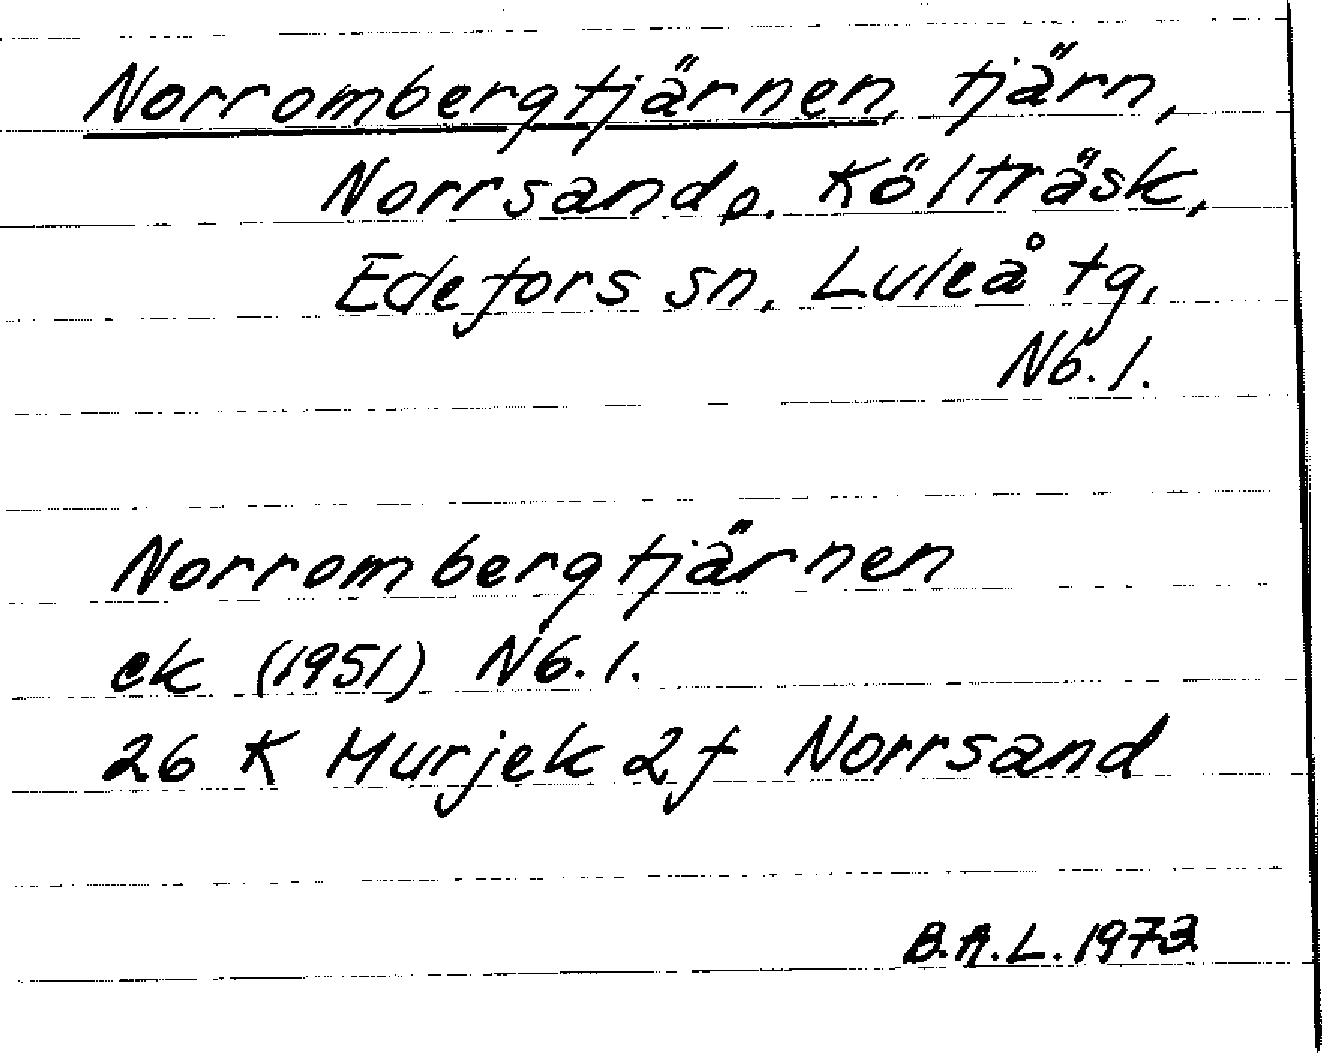 Norrombergtjärnen, tjärn,
Norrsand, o. Költräsk,
Edefors sn. Luleå tg,
Nb. l.
Norrombergtjärnen
ek (1951) Nb. l.
26 K Murjek 2f Norrsand
B.A.L. 1973